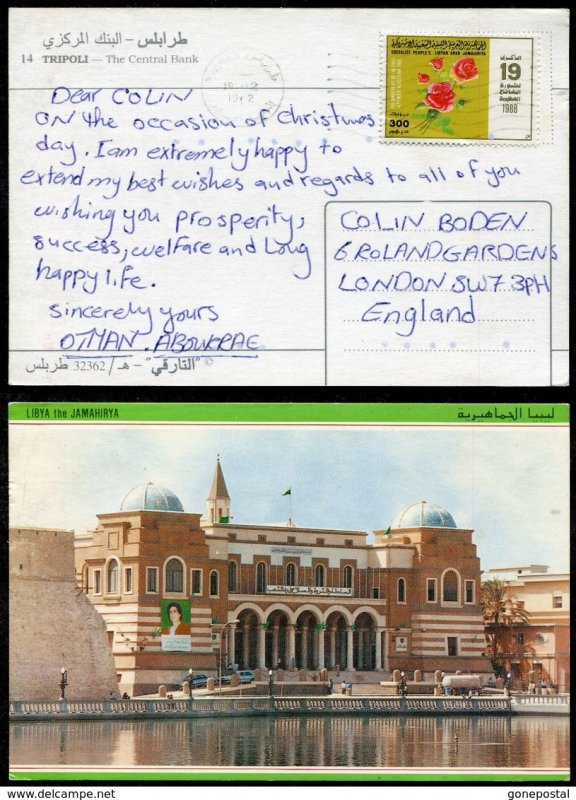 طرابلس – البنك المركزي
14 TRIPOLI — The Central Bank
الجماهيرية العربية الليبية الشعبية الاشتراكية
SOCIALIST PEOPLE'S LIBYAN ARAB JAMAHIRIYA
300
الذكرى
19
1988
Dear COLIN
ON the occasion of christmas
day. I am extremely happy to
extend my best wishes and regards to all of you
wishing you prosperity,
success, welfare and Long
happy life.
sincerely yours
OTMAN. ABOUKRAE
COLIN BODEN
6 ROLAND GARDENS
LONDON SW7 3PH
England
© "التارقي" – هـ/ 32362 طربلس
LIBYA the JAMAHIRYA
ليبيا الجماهيرية
gonepostal